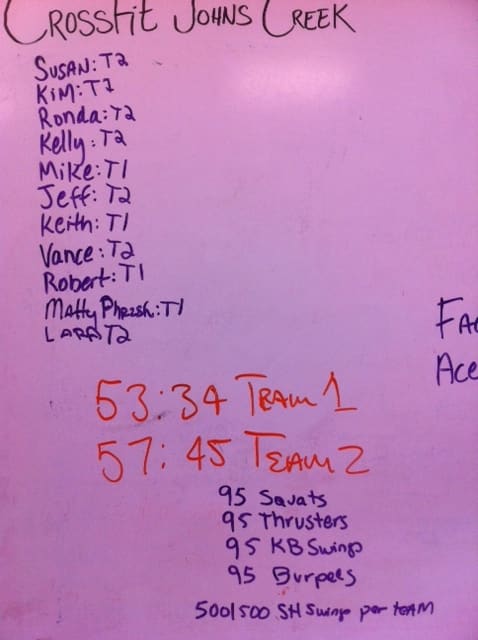 CROSSFIT JOHNS CREEK
SUSAN: T2
KIM: T2
Ronda: T2
Kelly: T2
Mike: T1
Jeff: T2
Keith: T1
Vance: T2
Robert: T1
Matty Phresh: T1
LARA T2
FA
Ace
53:34 TEAM 1
57:45 TEAM 2
95 Squats
95 Thrusters
95 KB Swings
95 Burpees
500/500 SH Swings per TEAM